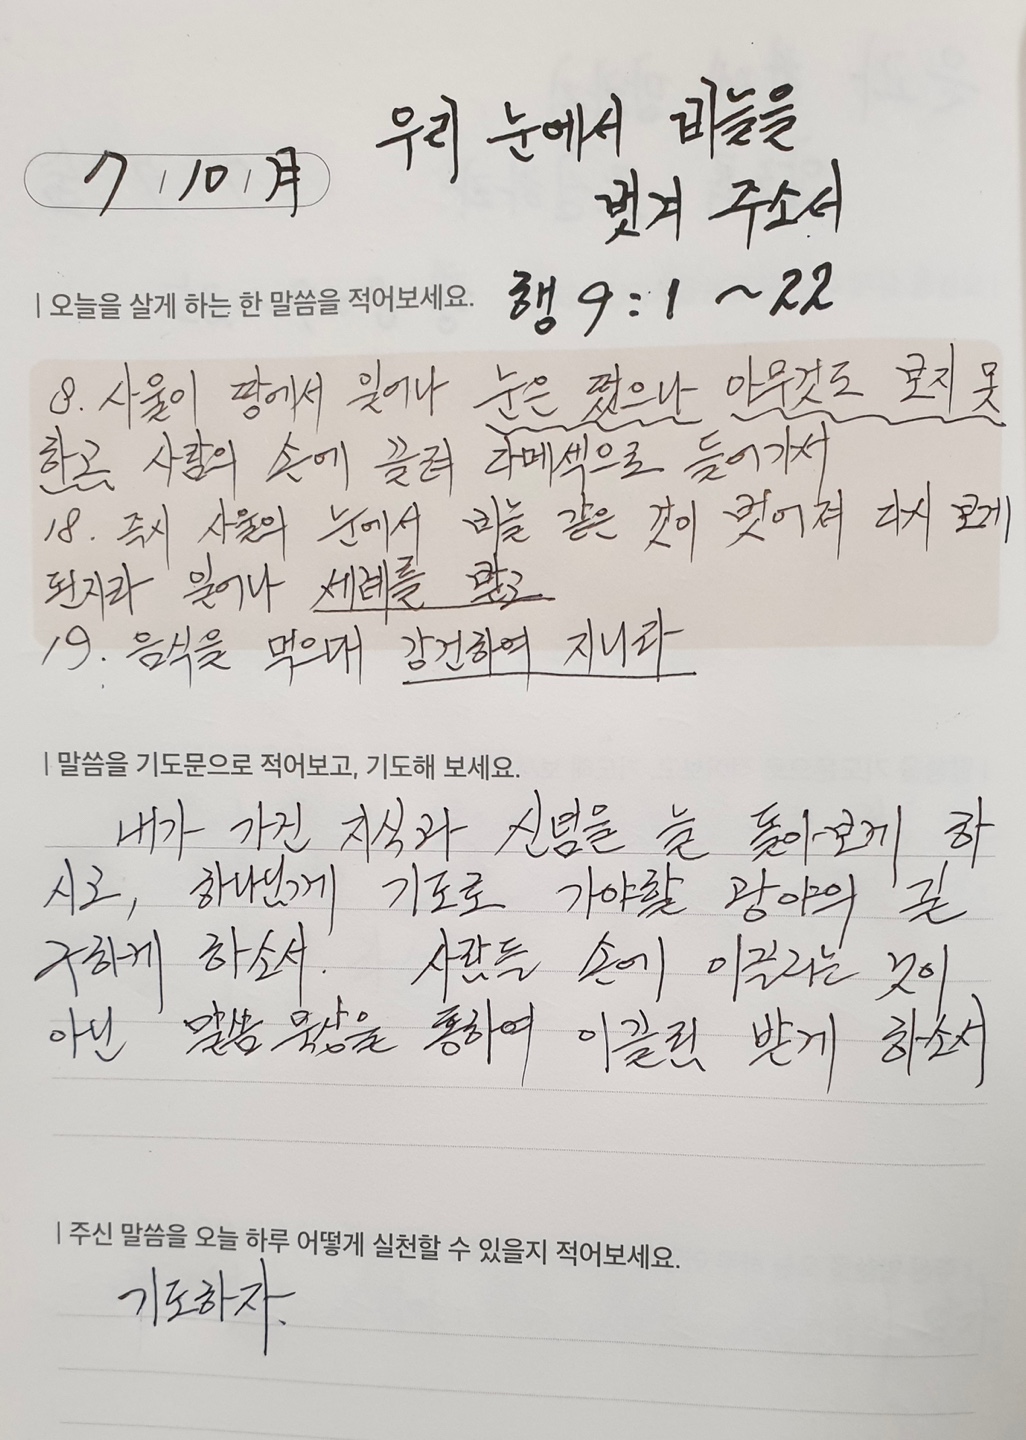 우리 눈에서 비늘을
7 / 10 / 月
벗겨 주소서
| 오늘을 살게 하는 한 말씀을 적어보세요.
행 9:1 ~ 22
8. 사울이 땅에서 일어나 눈은 떴으나 아무것도 보지 못
하고 사람의 손에 끌려 다메섹으로 들어가서
18. 즉시 사울의 눈에서 비늘 같은 것이 벗어져 다시 보게
된지라 일어나 세례를 받고
19. 음식을 먹으매 강건하여 지니라
| 말씀을 기도문으로 적어보고, 기도해 보세요.
내가 가진 지식과 신념을 늘 돌아보게 하
시고, 하나님께 기도로 가야할 광야의 길
구하게 하소서. 사람들 손에 이끌리는 것이
아닌 말씀 묵상을 통하여 이끌림 받게 하소서
| 주신 말씀을 오늘 하루 어떻게 실천할 수 있을지 적어보세요.
기도하자.